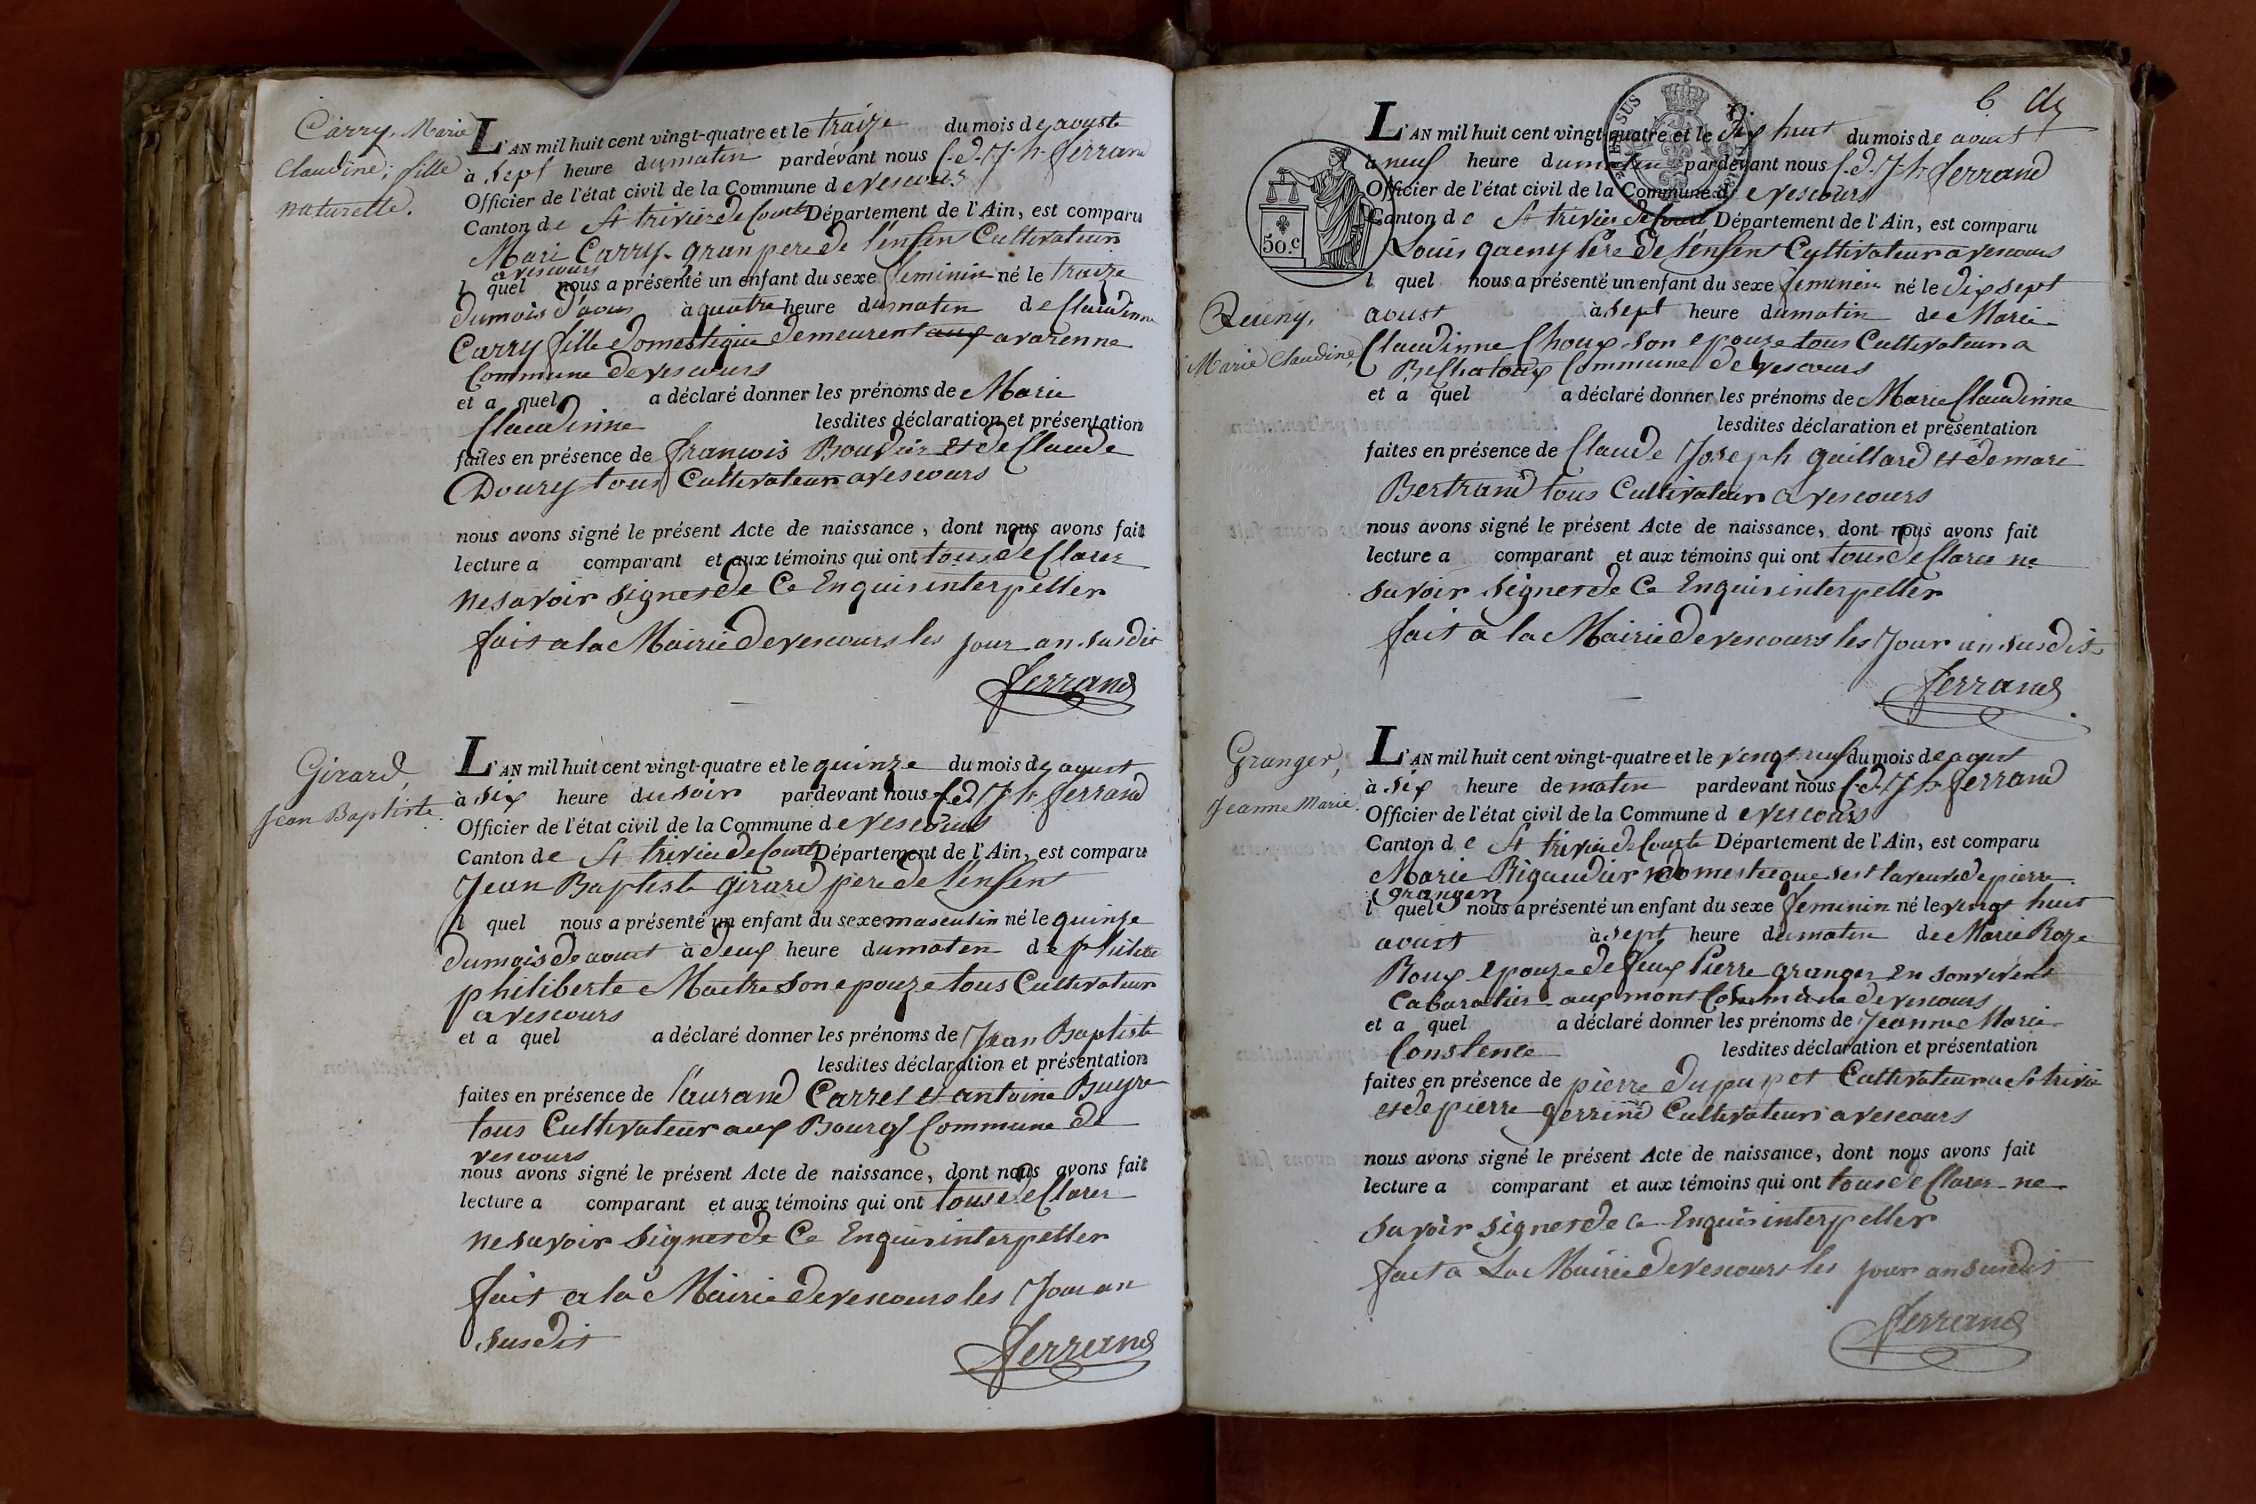 Carry, Marie
Claudine, fille
naturelle.
L'AN mil huit cent vingt-quatre et le traize du mois de aoust
à sept heure du matin pardevant nous C.d. J.h. ferrand
Officier de l'état civil de la Commune de vescours
Canton de St trivier de Court Département de l'Ain, est comparu
Mari Carry gran pere de l'enfent Cultivateur
a vescours
l quel nous a présenté un enfant du sexe feminin né le traize
du mois d'aous à quatre heure du matin de Claudinne
Carry fille domestique demeurent aux a varenne
Commune de vescours
et a quel a déclaré donner les prénoms de Marie
Claudinne lesdites déclaration et présentation
faites en présence de francois Bouvier et de Claude
Doury tous Cultivateur a vescours
nous avons signé le présent Acte de naissance, dont nous avons fait
lecture a comparant et aux témoins qui ont tous de Clarer
ne savoir signer de Ce Enquis interpeller
fait a la Mairie de vescours les jour an susdit
ferrand
Girard,
Jean Baptiste.
L'AN mil huit cent vingt-quatre et le quinze du mois de aoust
à six heure du soir pardevant nous C.d. J.h. ferrand
Officier de l'état civil de la Commune de vescours
Canton de St trivier de Court Département de l'Ain, est comparu
Jean Baptiste girard pere de l'enfent
l quel nous a présenté un enfant du sexe masculin né le quinze
du mois de aoust à deux heure du maten de philibe
philiberte Maitre son epouze tous Cultivateur
a vescours
et a quel a déclaré donner les prénoms de Jean Baptiste
lesdites déclaration et présentation
faites en présence de laurand Carrel et antoine Buyre
tous Cultivateur aux Bourg Commune de
vescours
nous avons signé le présent Acte de naissance, dont nous avons fait
lecture a comparant et aux témoins qui ont tous de Clarer
ne savoir signer de Ce Enquis interpeller
fait a la Mairie de vescours les Jour an
susdit
ferrand
6
50.c
L'AN mil huit cent vingt-quatre et le dix huit du mois de aoust
à neuf heure du maten pardevant nous C.d. J.h. ferrand
Officier de l'état civil de la Commune de vescours
Canton de St trivier de Court Département de l'Ain, est comparu
Louis queny Pere de l'enfent Cultivateur a vescours
l quel nous a présenté un enfant du sexe feminin né le dix sept
Queny,
Marie Claudine,
aoust à sept heure du matin de Marie
Claudinne Choux son epouze tous Cultivateur a
Commune de vescours
et a quel a déclaré donner les prénoms de Marie Claudinne
lesdites déclaration et présentation
faites en présence de Claude Joseph gaillard et de mari
Bertrand tous Cultivateur a vescours
nous avons signé le présent Acte de naissance, dont nous avons fait
lecture a comparant et aux témoins qui ont tous de Clarer ne
savoir signer de Ce Enquis interpeller
fait a la Mairie de vescours les Jour an susdit
ferrand
Granger,
Jeanne Marie.
L'AN mil huit cent vingt-quatre et le vingt neuf du mois de aoust
à six heure de maten pardevant nous C.d. J.h. ferrand
Officier de l'état civil de la Commune de vescours
Canton de St trivier de Court Département de l'Ain, est comparu
Marie Rigaudier domestique la veuve de pierre
granger
l quel nous a présenté un enfant du sexe feminin né le vingt huit
aoust à sept heure du matin de Marie Roze
Roux epouze de feux Pierre granger en son vivent
Cabaratier aux mont Commune de vescours
et a quel a déclaré donner les prénoms de Jeanne Marie
Constence lesdites déclaration et présentation
faites en présence de pierre dupupet Cultivateur a St trivier
et de pierre perrind Cultivateur a vescours
nous avons signé le présent Acte de naissance, dont nous avons fait
lecture a comparant et aux témoins qui ont tous de Clarer ne
savoir signer de Ce Enquis interpeller
fait a La Mairie de vescours les jour an susdit
ferrand